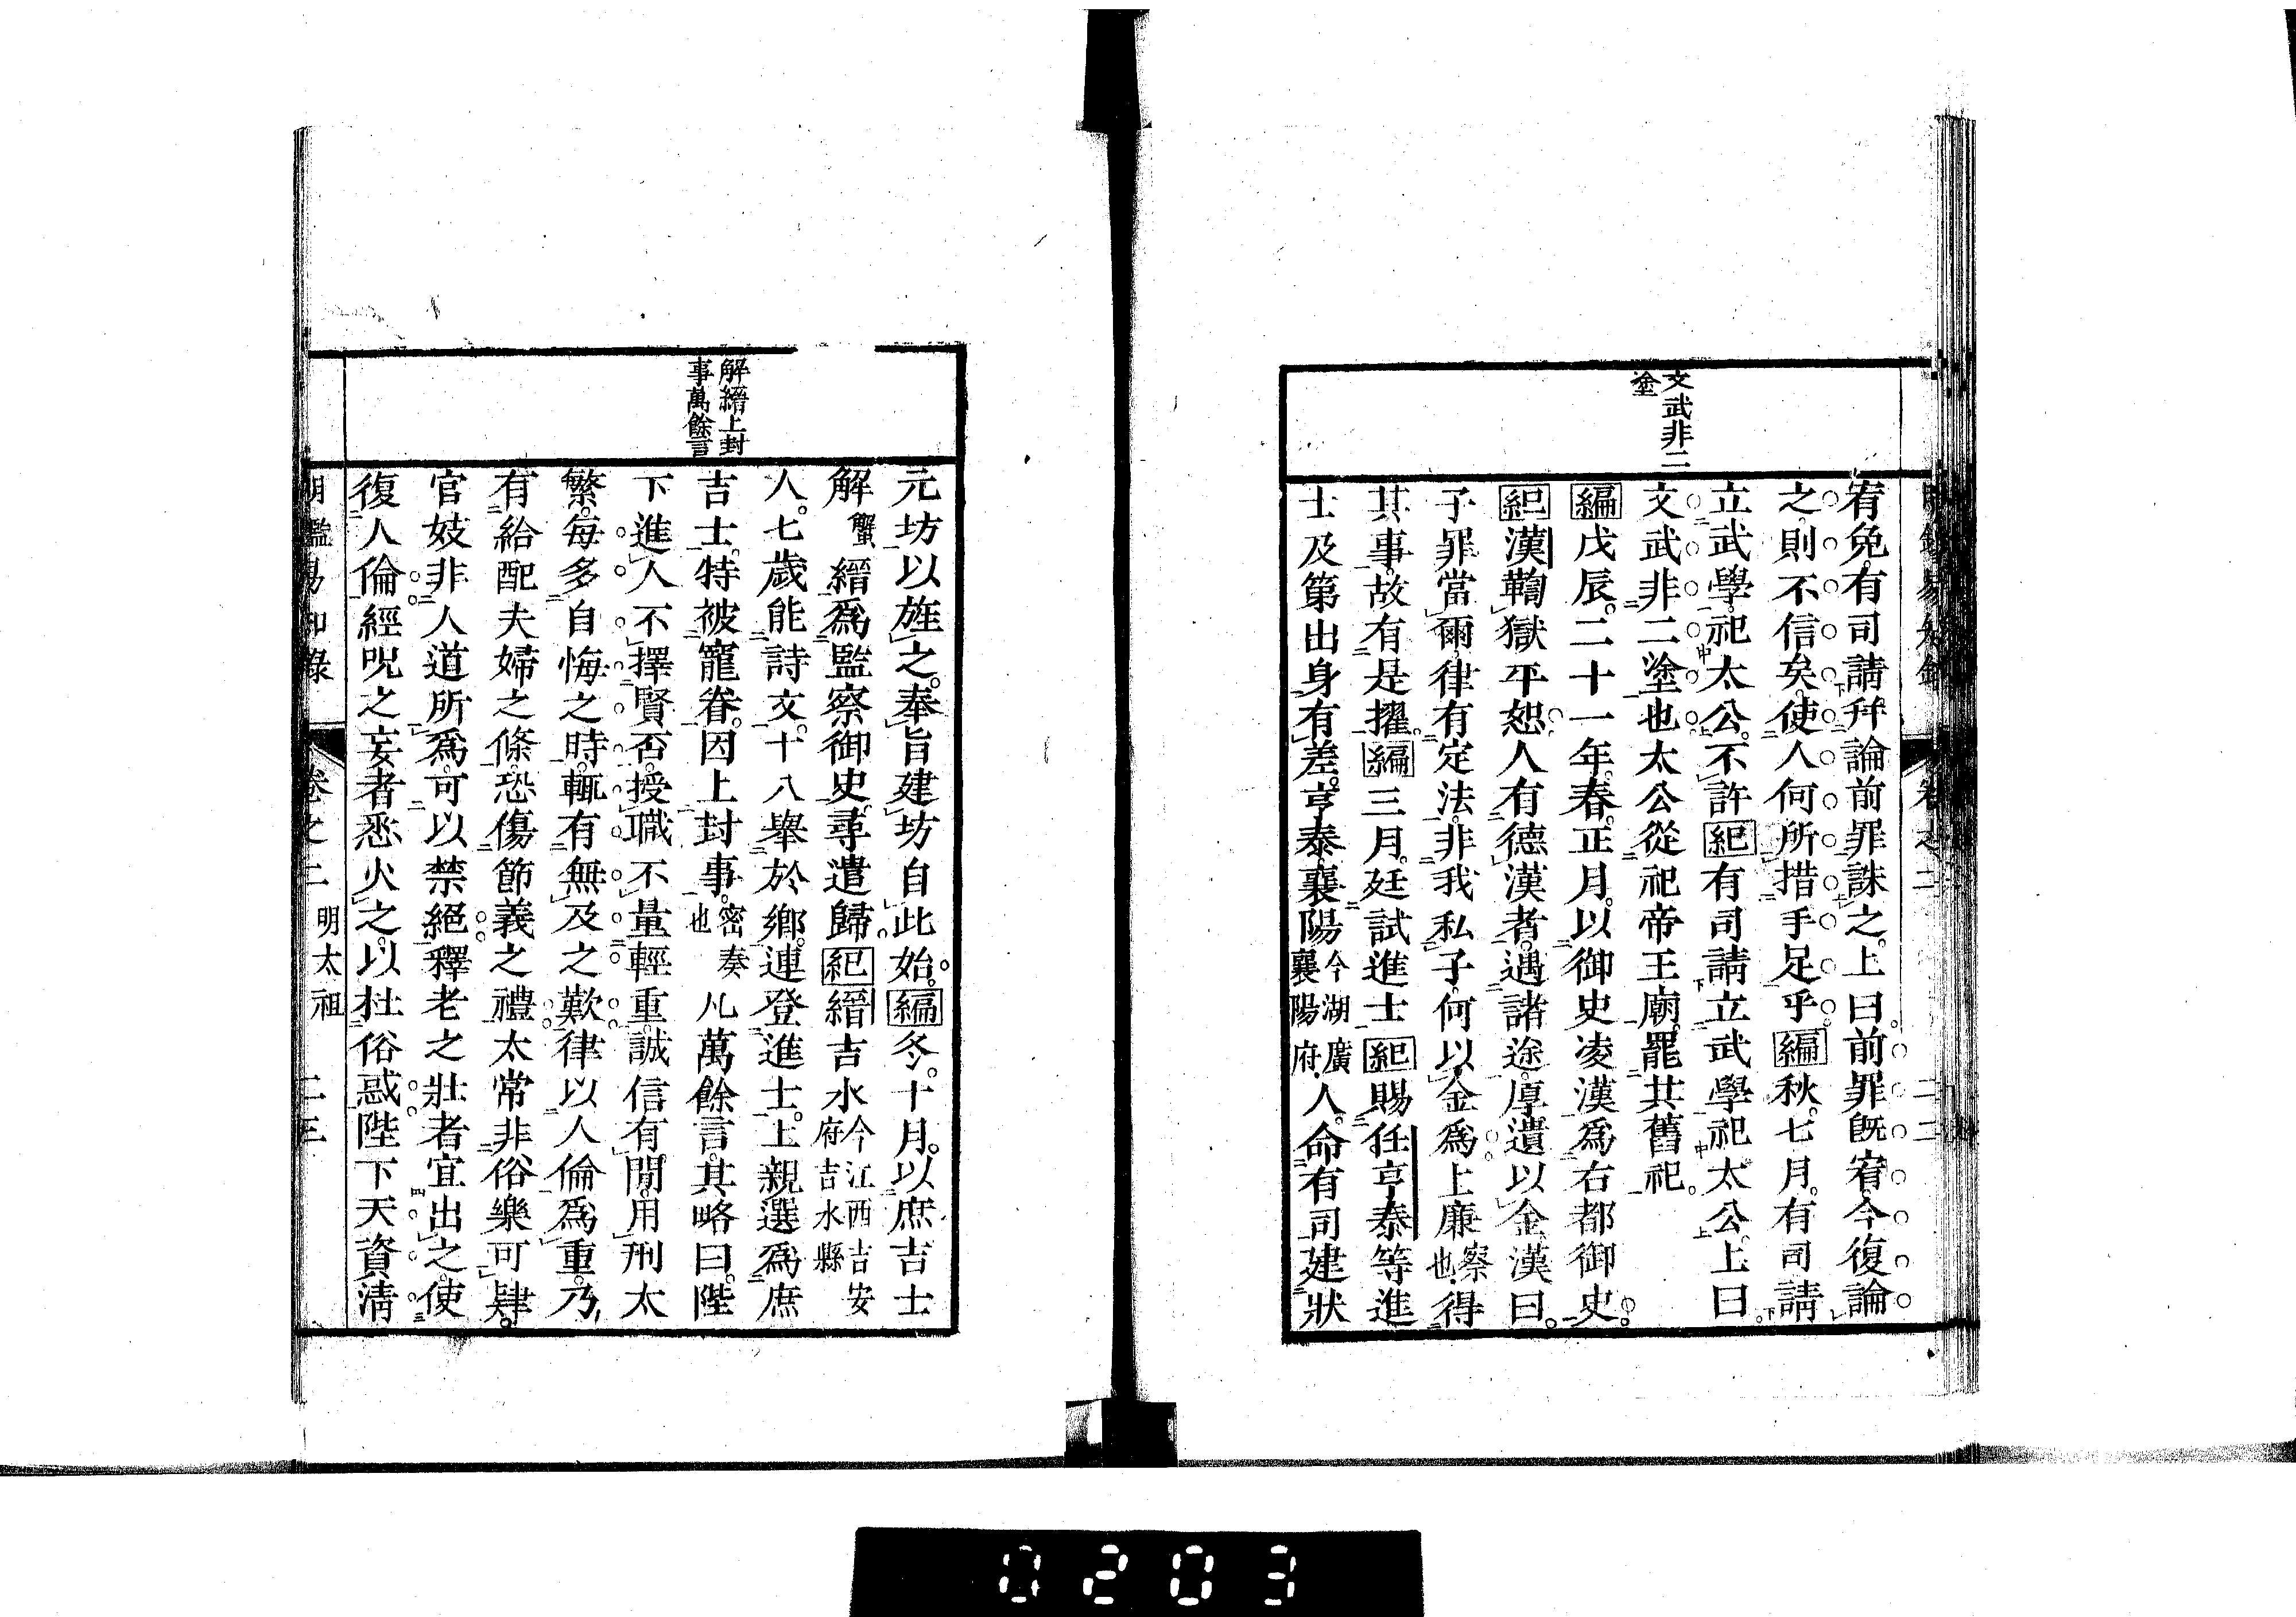 文武非二
塗
宥免。有司請幷論前罪誅之。上曰。前罪既宥。今復論
之。則不信矣。使人何所措手足乎。編秋。七月。有司請
立武學。祀太公。不許。紀有司請立武學。祀太公。上曰。
文武非二塗也。太公從祀帝王廟。罷其舊祀。
編戊辰。二十一年。春。正月。以御史凌漢爲右都御史。
紀漢鞫獄平恕。人有德漢者。遇諸途。厚遺以金。漢曰。
子罪當爾。律有定法。非我私子。何以金爲。上廉察也。得
其事。故有是擢。編三月。廷試進士。紀賜任亨泰等進
士及第出身有差。亨泰襄陽今湖廣襄陽府人。命有司建狀
解縉上封
事萬餘言
元坊以旌之。奉旨建坊自此始。編冬。十月。以庶吉士
解蟹縉爲監察御史。尋遣歸。紀縉吉水今江西吉安府吉水縣
人。七歲能詩文。十八舉於鄉。連登進士。上親選爲庶
吉士。特被寵眷。因上封事。密奏也凡萬餘言。其略曰。陛
下進人不擇賢否。授職不量輕重。誠信有閒。用刑太
繁。每多自悔之時。輒有無及之歎。律以人倫爲重。乃
有給配夫婦之條。恐傷節義之禮。太常非俗樂可肄。
官妓非人道所爲。可以禁絕。釋老之壯者宜出之。使
復人倫。經呪之妄者悉火之。以杜俗惑。陛下天資清
明鑑易知錄 卷之二 明太祖 二三
0203